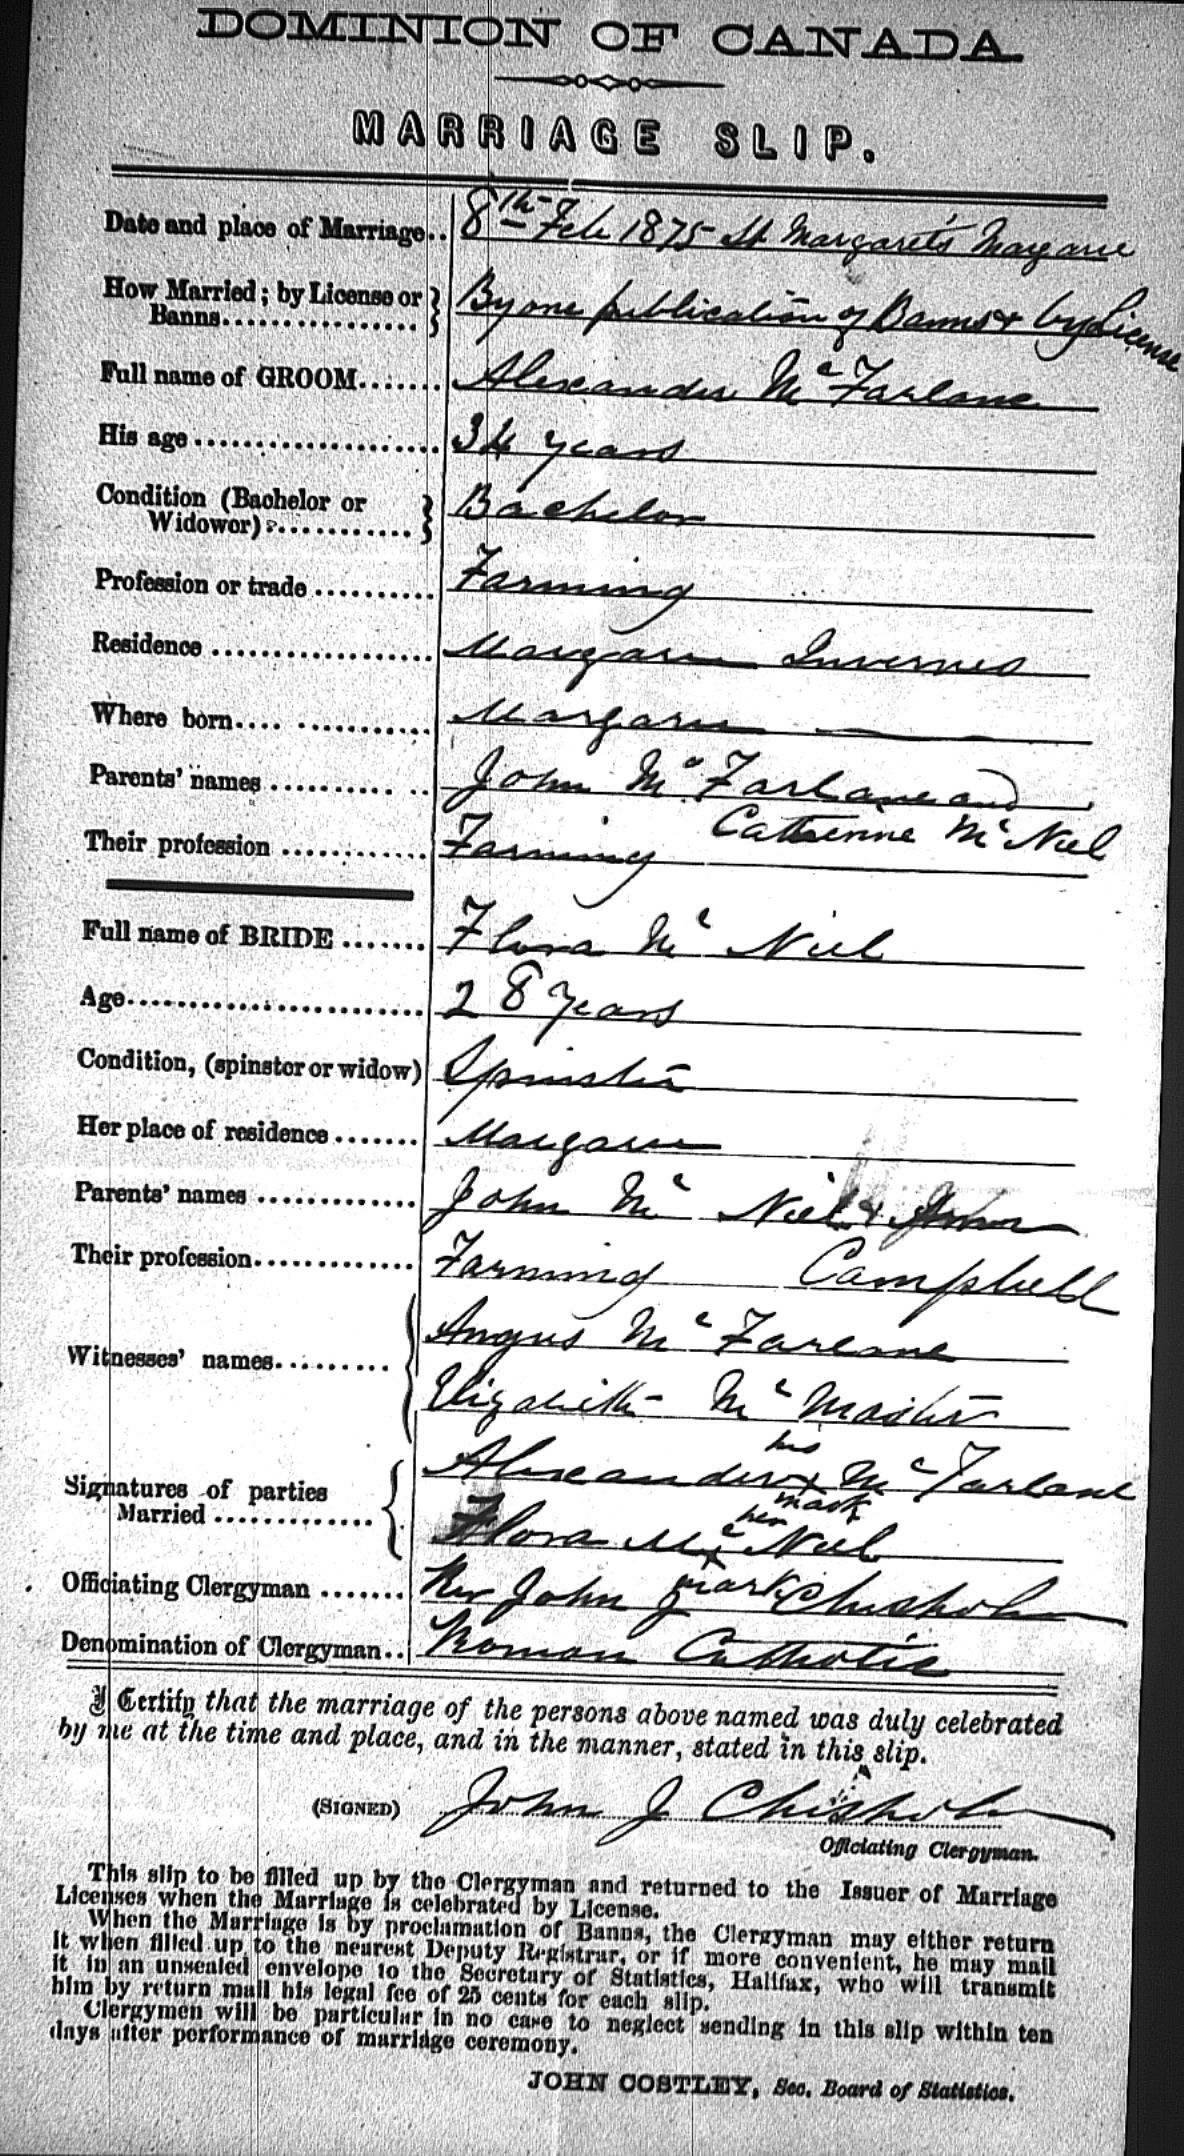 DOMINION OF CANADA
MARRIAGE SLIP.
Date and place of Marriage.. 8th Feb 1875 St Margaret's Margaree
How Married; by License or Banns................ By one publication of Banns & by License
Full name of GROOM....... Alexander McFarlane
His age ...................... 34 years
Condition (Bachelor or Widower) ............. Bachelor
Profession or trade .......... Farming
Residence .................. Margaree Inverness
Where born.... ........... Margaree
Parents' names .......... .. John McFarlane and
Catherine McNiel
Their profession ............ Farming
Full name of BRIDE ....... Flora McNiel
Age......................... 28 years
Condition, (spinster or widow) Spinster
Her place of residence ....... Margaree
Parents' names ............. John McNiel &
Campbell
Their profession............. Farming
Witnesses' names......... Angus McFarlane
Elizabeth McMaster
his
Signatures of parties Married ............. Alexander x McFarlane
mark
her
Flora Mc x Niel
mark
Officiating Clergyman ....... Rev John J Chisholm
Denomination of Clergyman.. Roman Catholic
I Certify that the marriage of the persons above named was duly celebrated
by me at the time and place, and in the manner, stated in this slip.
(SIGNED) John J Chisholm
Officiating Clergyman.
This slip to be filled up by the Clergyman and returned to the Issuer of Marriage
Licenses when the Marriage is celebrated by License.
When the Marriage is by proclamation of Banns, the Clergyman may either return
it when filled up to the nearest Deputy Registrar, or if more convenient, he may mail
it in an unsealed envelope to the Secretary of Statistics, Halifax, who will transmit
him by return mail his legal fee of 25 cents for each slip.
Clergymen will be particular in no case to neglect sending in this slip within ten
days after performance of marriage ceremony.
JOHN COSTLEY, Sec. Board of Statistics.